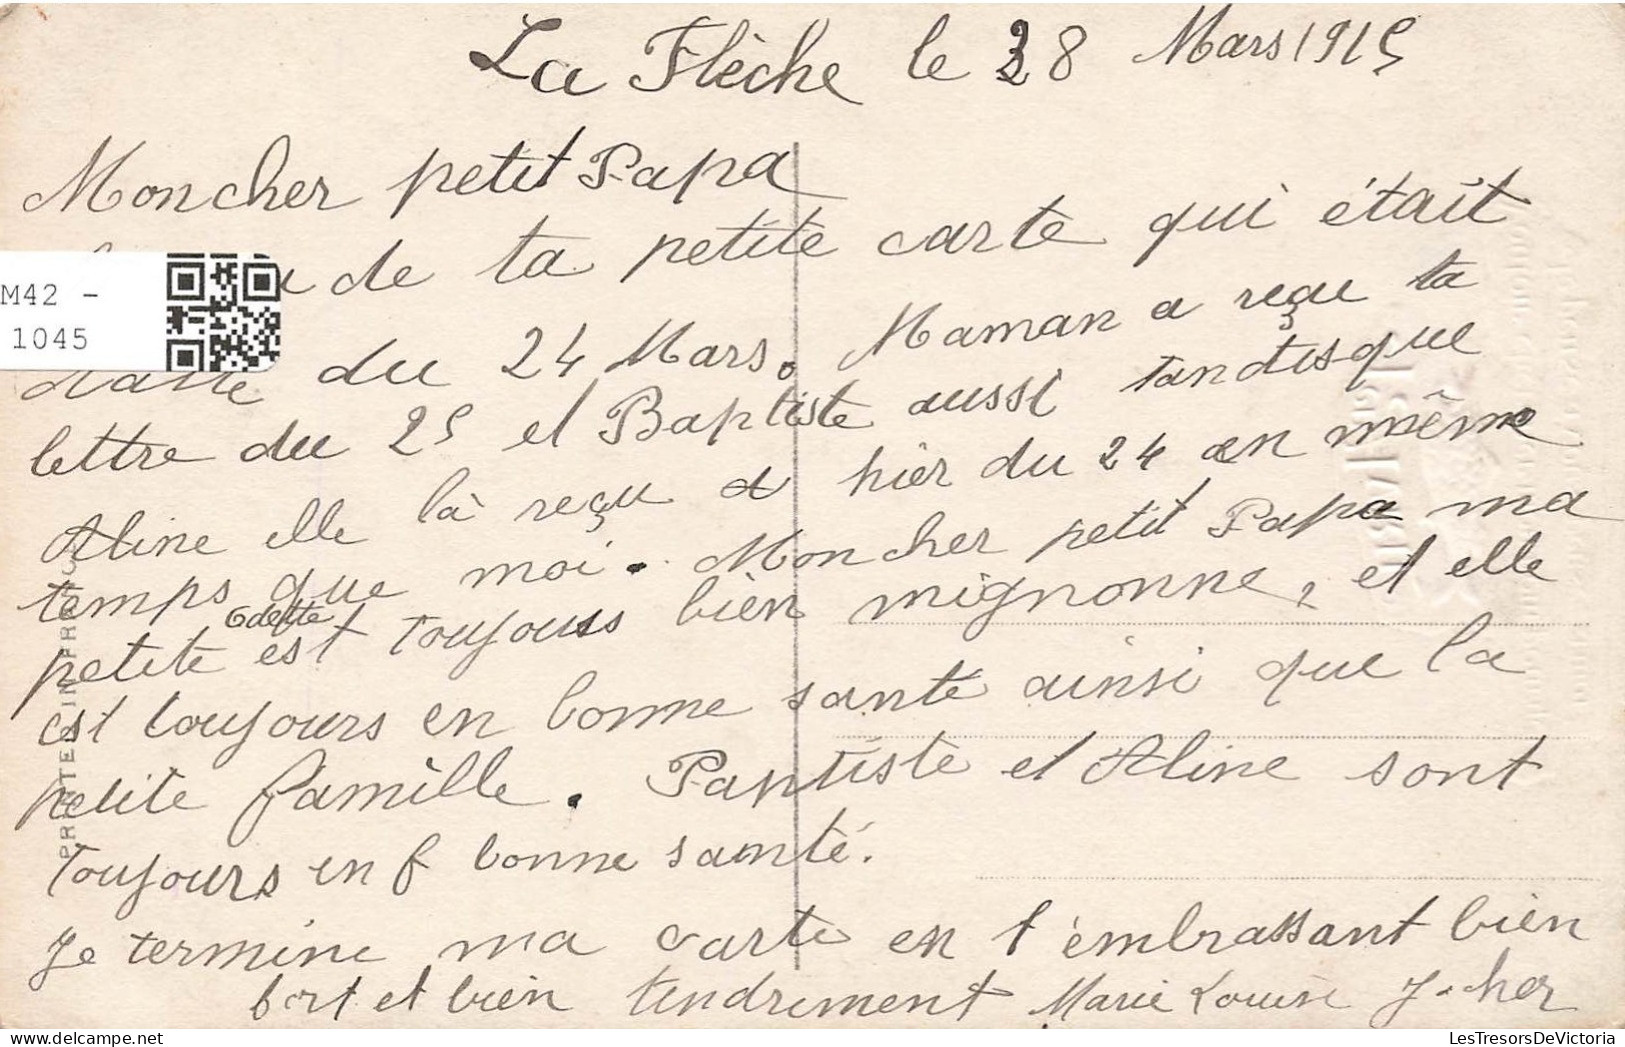 La Flèche le 28 Mars 1915
Mon cher petit Papa
de ta petite carte qui était
datte du 24 Mars. Maman a reçue ta
lettre du 25 et Baptiste aussi tandisque
Aline elle là reçu hier du 24 en même
temps que moi. Mon cher petit Papa ma
Odette
petite est toujours bien mignonne, et elle
est toujours en bonne santé ainsi que la
petite famille. Paptiste et Aline sont
toujours en f bonne santé.
Je termine ma carte en t'embrassant bien
fort et bien tendrement Marie Louise
M42 -
1045
PRINTED IN FRANCE
LesTresorsDeVictoria